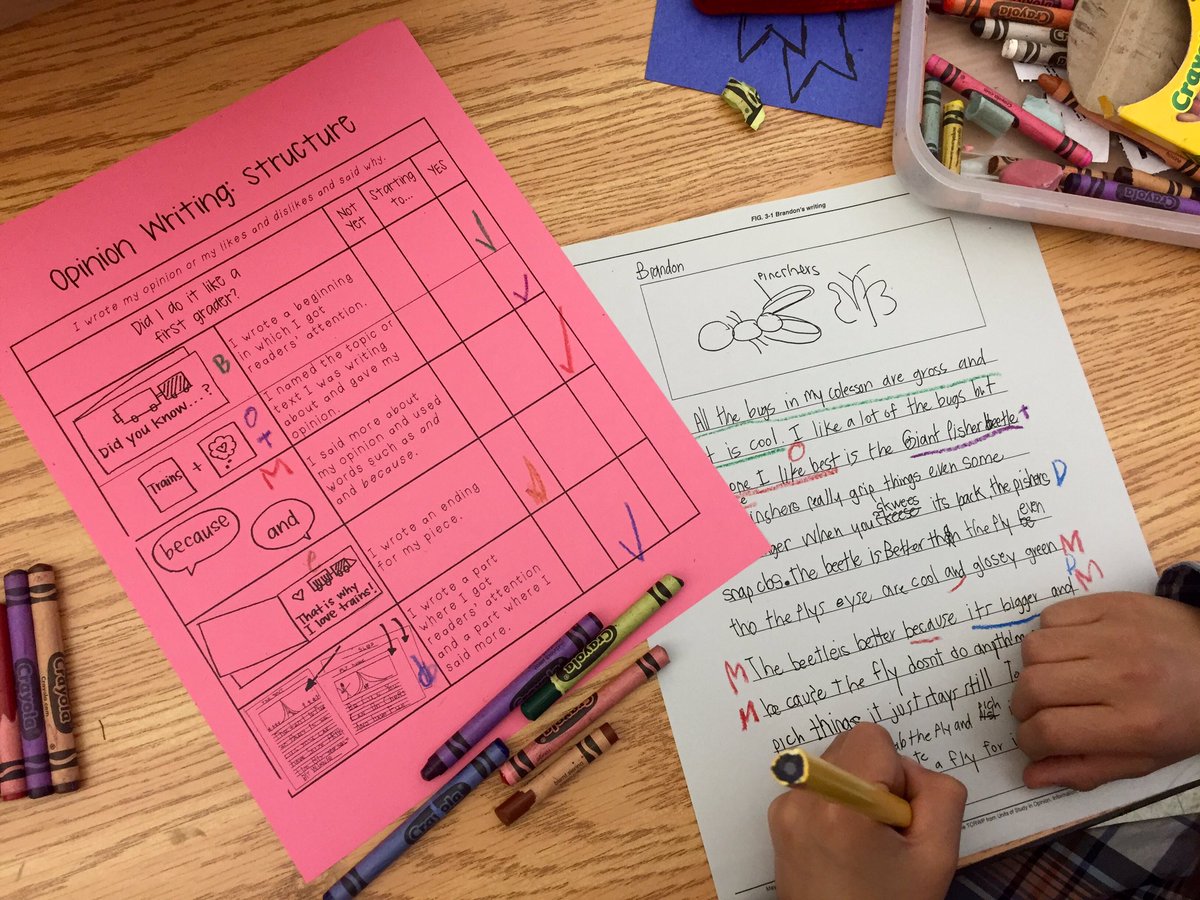 Opinion Writing: Structure
I wrote my opinion or my likes and dislikes and said why.
Did I do it like a
first grader?
Not
yet
Starting
to...
YES
Did you know....?
B
I wrote a beginning
in which I got
readers' attention.
Trains
+
O
t
I named the topic or
text I was writing
about and gave my
opinion.
because
and
M
I said more about
my opinion and used
words such as and
and because.
That is why
I love trains!
e
I wrote an ending
for my piece.
I wrote a part
where I got
readers' attention
and a part where I
said more.
FIG. 3-1 Brandon's writing
Brandon
pincrhers
All the bugs in my coleson are gross and
t is cool. I like a lot of the bugs but
O
one I like best is the Giant Pisher beetle t
inshers really grip things even some
ger when you skwees its back, the pishers D
snap clbs. the beetle is Better than the fly even
tho the flys eyse are cool and glosey green M
M The beetle is better because its bigger and M
M be cause the fly dosnt do anything
pich things it just stays still
ab the fly and pich
a fly for
TCRWP from Units of Study in Opinion, Information
Crayola
Crayola
Crayola
Crayola
Crayola
Crayola
Crayola
Crayola